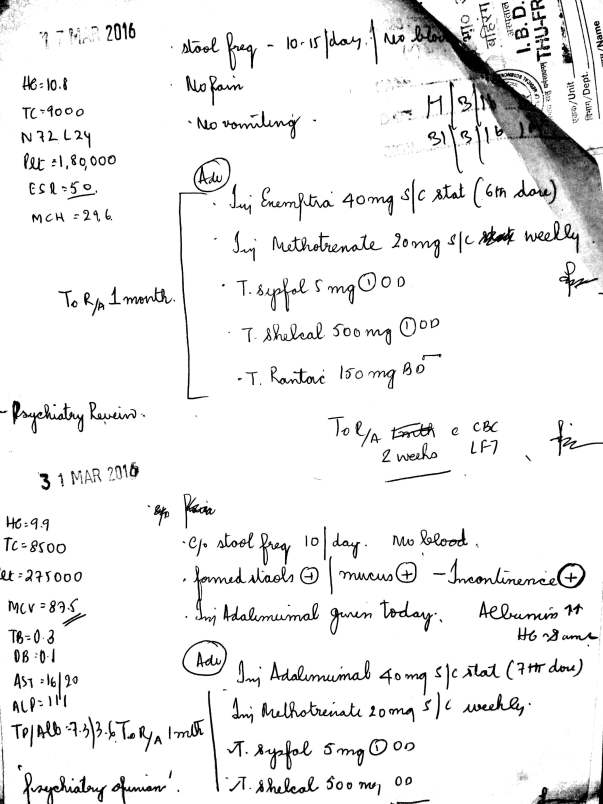 17 MAR 2016
stool freq - 10-15/day / No blood
No Pain
No vomiting
I.B.D.
THU-FR
एकक/Unit
विभाग/Dept.
/Name
Hb=10.8
TC=9000
N72 L24
Plt=1,80,000
ESR=50
MCH=29.6
Adv
Inj Exemptia 40mg S/C stat (6th dose)
Inj Methotrexate 20mg S/C weekly
T. Sysfol 5 mg ① OD
T. Shelcal 500 mg ① OD
T. Rantac 150 mg BD
To R/A 1 month.
- Psychiatry Review.
To R/A c CBC
2 weeks LFT
31 MAR 2016
Hb=9.9
TC=8500
Plt=275000
MCV=87.5
TB=0.3
DB=0.1
AST=16/20
ALP=111
TP/Alb=7.3/3.6
c/o stool freq 10/day. No blood.
formed stools + / mucus + - Incontinence +
Inj Adalimumab given today.
Albumin ↑↑
Hb same
Adv
Inj Adalimumab 40mg S/C stat (7th dose)
Inj Methotrexate 20mg S/C weekly.
T. Sysfol 5mg ① OD
T. Shelcal 500 mg OD
To R/A 1 mth
"Psychiatry opinion".